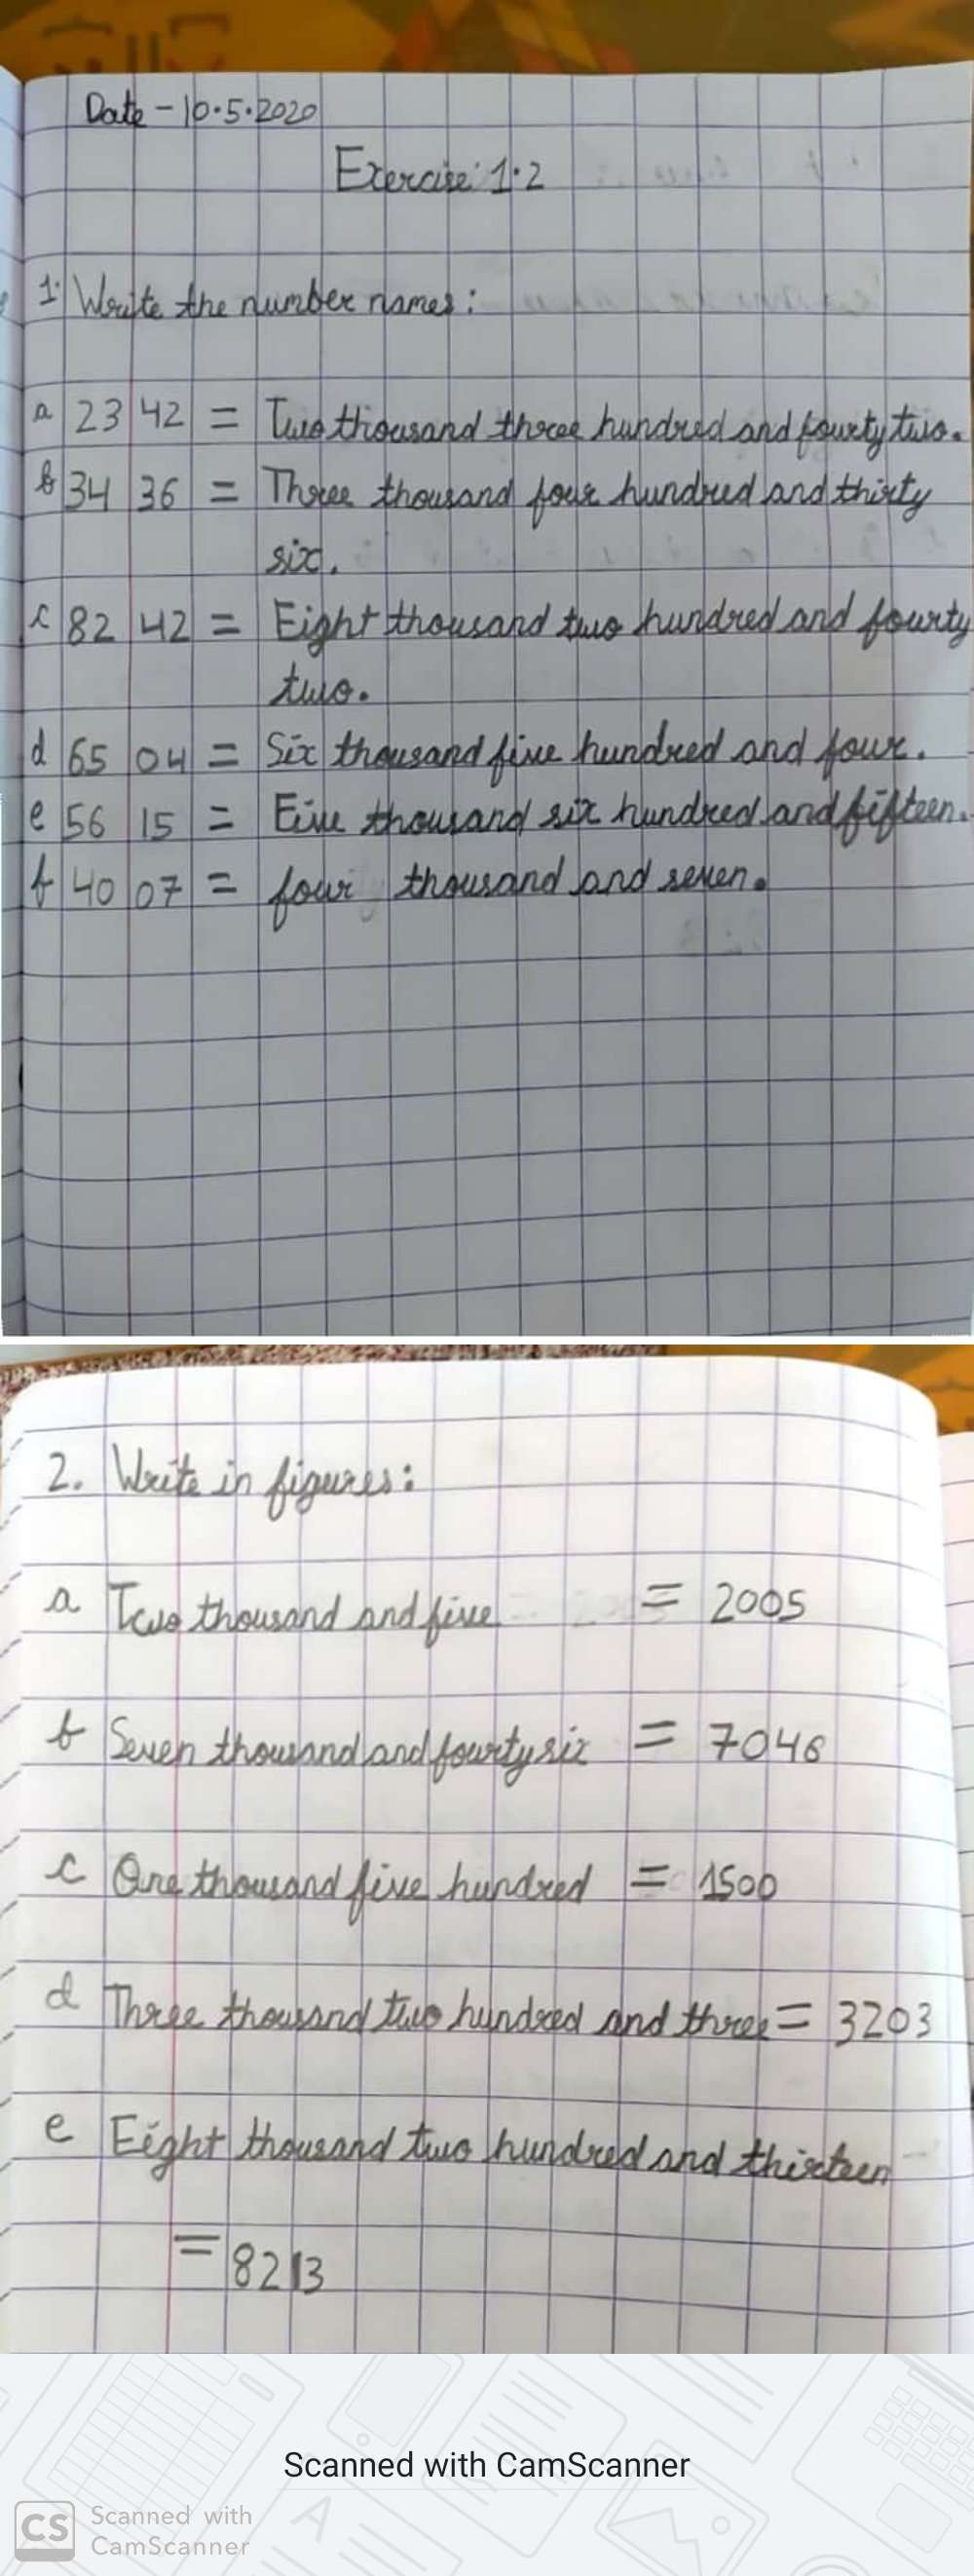 Date - 10.5.2020
Exercise 1.2
1. Write the number names:
a 2342 = Two thousand three hundred and fourty two.
b 3436 = Three thousand four hundred and thirty
six.
c 8242 = Eight thousand two hundred and fourty
two.
d 6504 = Six thousand five hundred and four.
e 5615 = Five thousand six hundred and fifteen.
f 4007 = four thousand and seven.
2. Write in figures:
a Two thousand and five = 2005
b Seven thousand and fourty six = 7046
c One thousand five hundred = 1500
d Three thousand two hundred and three = 3203
e Eight thousand two hundred and thirteen
= 8213
Scanned with CamScanner
CS Scanned with
CamScanner